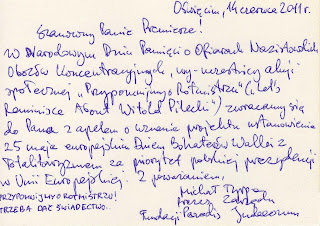 Oświęcim, 14 czerwca 2011r.
Szanowny Panie Premierze!
W Narodowym Dniu Pamięci o Ofiarach Nazistowskich
Obozów Koncentracyjnych, my-uczestnicy akcji
społecznej „Przypomnijmy o Rotmistrzu" („Let's
Reminisce About Witold Pilecki") zwracamy się
do Pana z apelem o uznanie projektu ustanowienia
25 maja europejskim Dniem Bohaterów Walki z
Totalitaryzmem za priorytet polskiej prezydencji
w Unii Europejskiej. Z poważaniem,
Michał
PRZYPOMNIJMY O ROTMISTRZU!
TRZEBA DAĆ ŚWIADECTWO.
Fundacji Paradis Judaeorum